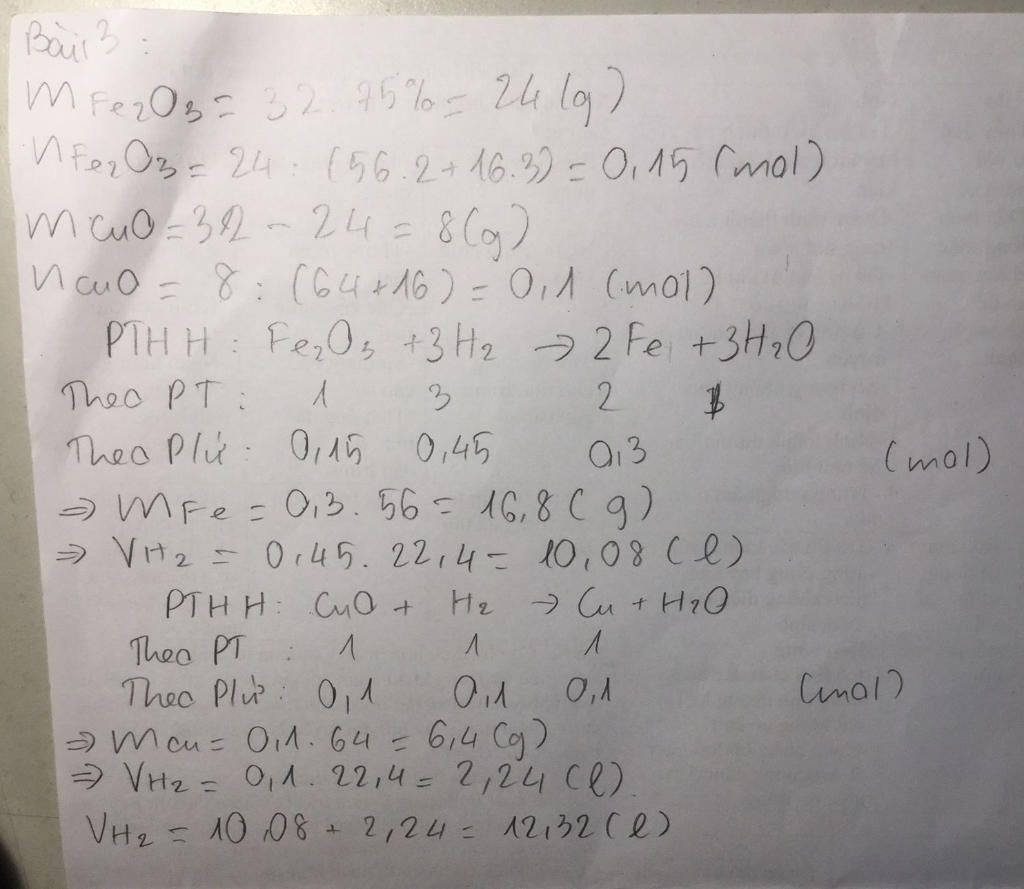 Bài 3 :
mFe₂O₃ = 32.75% = 24 (g)
nFe₂O₃ = 24 : (56.2+16.3) = 0,15 (mol)
mCuO = 32 - 24 = 8(g)
nCuO = 8 : (64+16) = 0,1 (mol)
PTHH : Fe₂O₃ + 3H₂ → 2Fe + 3H₂O
Theo PT : 1 3 2
Theo P/ứ : 0,15 0,45 0,3 (mol)
⇒ mFe = 0,3. 56 = 16,8 (g)
⇒ VH₂ = 0,45. 22,4 = 10,08 (l)
PTHH : CuO + H₂ → Cu + H₂O
Theo PT : 1 1 1
Theo P/ứ : 0,1 0,1 0,1 (mol)
⇒ mCu = 0,1. 64 = 6,4 (g)
⇒ VH₂ = 0,1. 22,4 = 2,24 (l).
VH₂ = 10,08 + 2,24 = 12,32 (l)